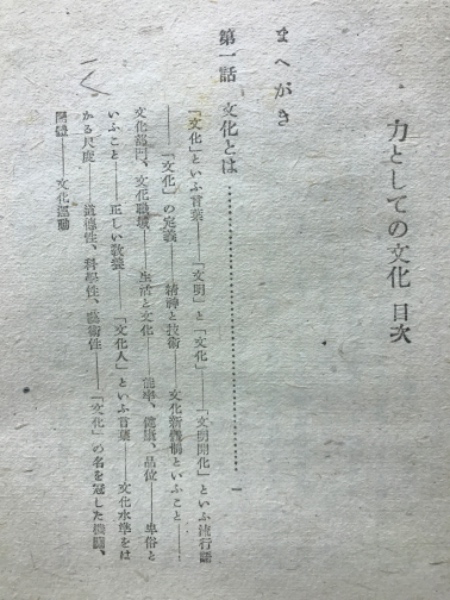 力としての文化 目次
まへがき
第一話 文化とは……………………………一
「文化」といふ言葉――「文明」と「文化」――「文明開化」といふ流行語
――「文化」の定義――精神と技術――文化新體制といふこと――
文化部門、文化職域――生活と文化――能率、健康、品位――卑俗と
いふこと――正しい敎養――「文化人」といふ言葉――文化水準をは
かる尺度――道德性、科學性、藝術性――「文化」の名を冠した機關、
團體――文化運動